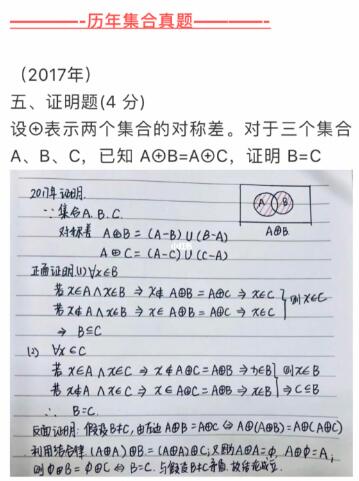 ————-历年集合真题————-
（2017年）
五、证明题(4 分)
设⊕表示两个集合的对称差。对于三个集合
A、B、C，已知 A⊕B=A⊕C，证明 B=C
2017年证明.
∵集合A. B. C.
对称差 A⊕B = (A-B)∪(B-A)
A⊕C = (A-C)∪(C-A)
A B
A⊕B
正面证明:(1) ∀x∈B
若x∈A∧x∈B ⇒ x∉A⊕B = A⊕C ⇒ x∈C
若x∉A∧x∈B ⇒ x∈A⊕B = A⊕C ⇒ x∈C
则x∈C
⇒ B⊆C
(2) ∀x⊆C
若x∈A∧x∈C ⇒ x∉A⊕C = A⊕B ⇒ x∈B 则x∈B
若x∉A∧x∈C ⇒ x∈A⊕C = A⊕B ⇒ x∈B ⇒ C⊆B
∴ B=C.
反面证明: 假设B≠C, 由左边 A⊕B = A⊕C ⇔ A⊕(A⊕B) = A⊕(A⊕C)
利用结合律 (A⊕A)⊕B = (A⊕A)⊕C, 又助A⊕A=ϕ. A⊕ϕ=A;
则 ϕ⊕B = ϕ⊕C ⇔ B=C. 与假设B≠C矛盾. 故结论成立.